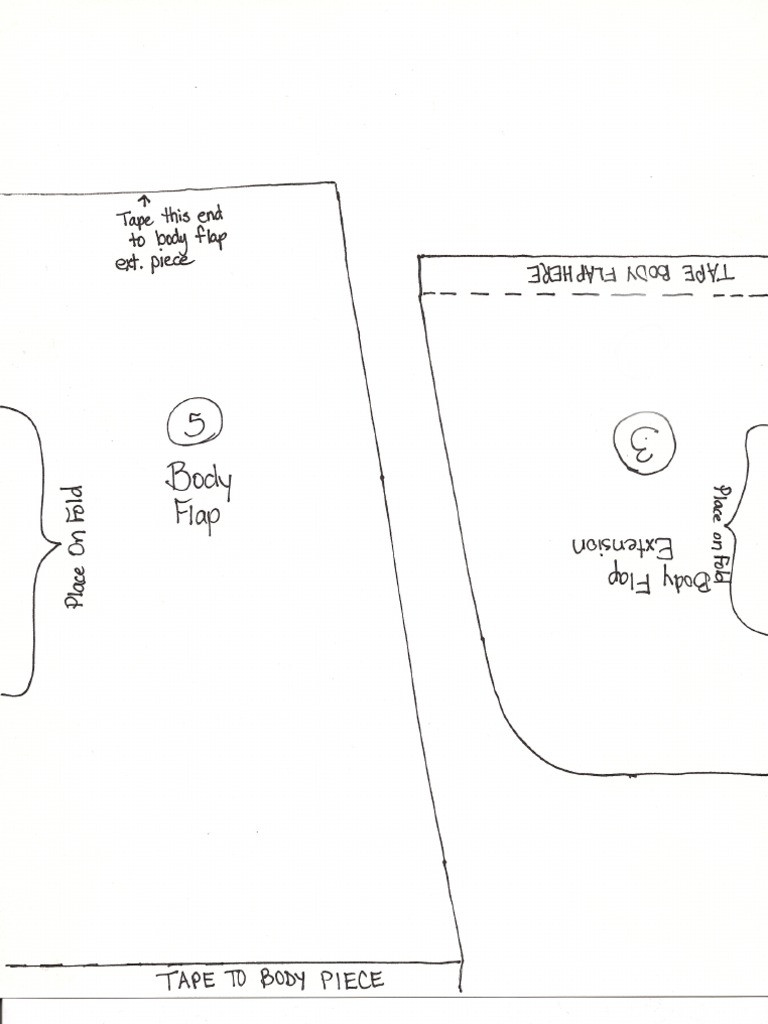 Tape this end
to body flap
ext. piece
5
Body
Flap
Place On Fold
TAPE TO BODY PIECE
TAPE BODY FLAP HERE
3
Body Flap
Extension
Place on Fold